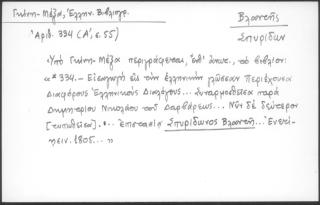 Γκίνη - Μέξα, Ἑλλην. Βιβλιογρ.
Βλαντῆς
Σπυρίδων
Ἀριθ. 334 (Α', σ. 55)
Ὑπὸ Γκίνη - Μέξα περιγράφεται, ἐπ' ἀριθ., τὸ βιβλίον:
«*334.- Εἰσαγωγὴ εἰς τὴν ἑλληνικὴν γλῶσσαν Περιέχουσα
Διαφόρους Ἑλληνικοὺς Διαλόγους... Συναρμοσθεῖσα παρὰ
Δημητρίου Νικολάου τοῦ Δαρβάρεως... Νῦν δὲ δεύτερον
[τυπωθεῖσα]... ἐπιστασίᾳ Σπυρίδωνος Βλαντῆ... Ἐνετί-
ησιν. 1805... »